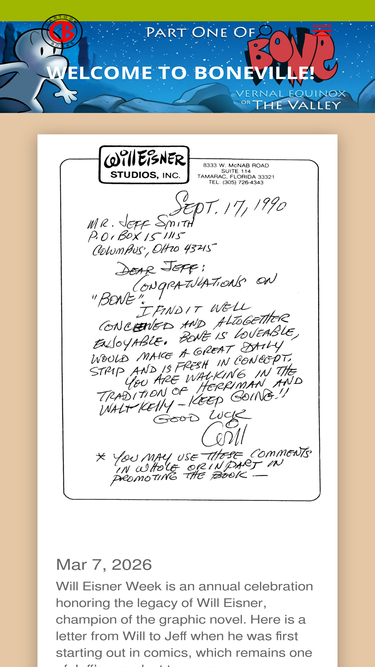 CB
PART ONE OF
BONE
WELCOME TO BONEVILLE!
VERNAL EQUINOX
OR THE VALLEY
WILL EISNER
STUDIOS, INC.
8333 W. McNAB ROAD
SUITE 114
TAMARAC, FLORIDA 33321
TEL: (305) 726-4343
SEPT. 17, 1990
MR. JEFF SMITH
P.O. BOX 15115
COLUMBUS, OHIO 43215
DEAR JEFF:
CONGRATULATIONS ON
"BONE".
I FIND IT WELL
CONCEIVED AND ALTOGETHER
ENJOYABLE. BONE IS LOVEABLE,
WOULD MAKE A GREAT DAILY
STRIP AND IS FRESH IN CONCEPT.
YOU ARE WALKING IN THE
TRADITION OF HERRIMAN AND
WALT KELLY — KEEP GOING!!
GOOD LUCK
Will
* YOU MAY USE THESE COMMENTS
IN WHOLE OR IN PART IN
PROMOTING THE BOOK —
Mar 7, 2026
Will Eisner Week is an annual celebration
honoring the legacy of Will Eisner,
champion of the graphic novel. Here is a
letter from Will to Jeff when he was first
starting out in comics, which remains one